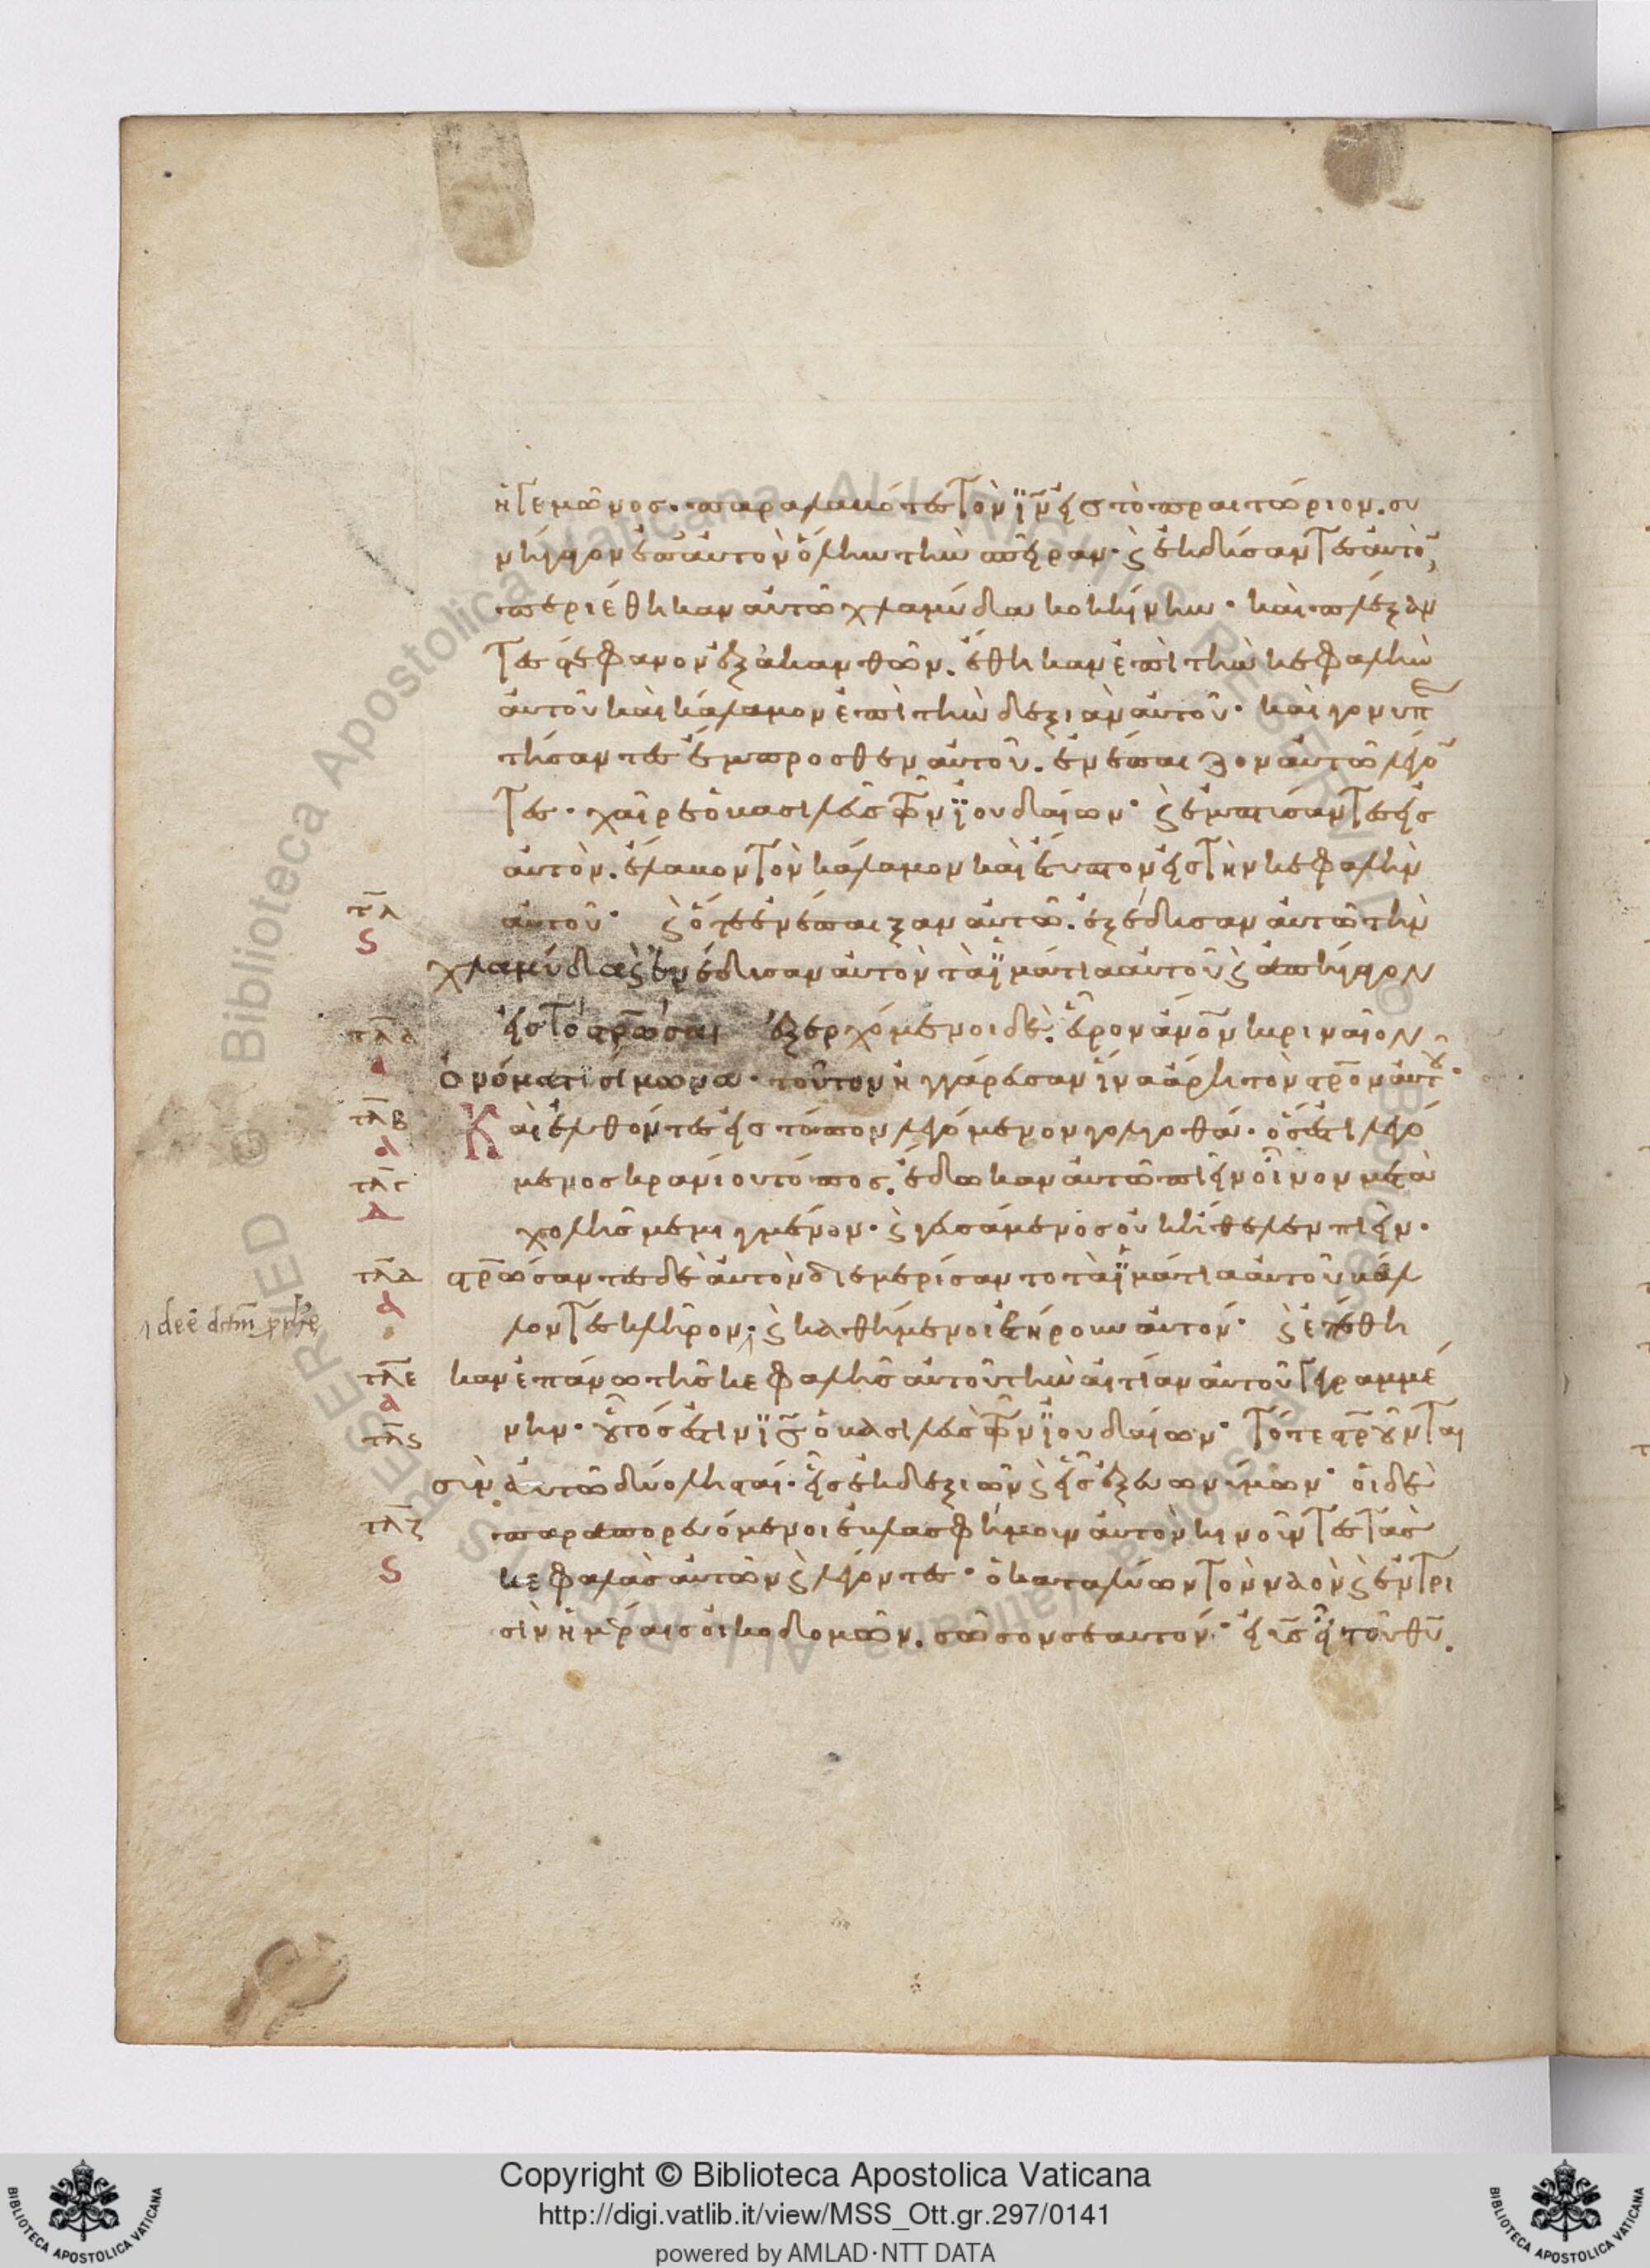 ἡγεμῶνος· παραλαβότες τὸν ἰν εἰς τὸ πραιτώριον. συ
νήγαγον ἐπ αὐτὸν ὅλην τὴν σπεῖραν· ϗ ἐκδύσαντες αὐτὸ
περιέθηκαν αὐτῶ χλαμύδα κοκκίνην· καὶ πλέξαν
τες στέφανον ἐξ ἀκανθῶν. ἔθηκαν ἐπὶ τὴν κεφαλὴν
αὐτοῦ καὶ κάλαμον ἐπὶ τὴν δεξιὰν αὐτοῦ· καὶ γονυπε
τήσαντες ἔμπροσθεν αὐτοῦ. ἐνέπαιζον αὐτῶ λέγο
τες· χαῖρε ὁ βασιλεὺς τῶν ἰουδαίων· ϗ ἐμπτύσαντες εἰς
αὐτὸν. ἔλαβον τὸν κάλαμον καὶ ἔτυπτον εἰς τὴν κεφαλὴν
τλ αὐτοῦ· ϗ ὅτε ἐνέπαιξαν αὐτῶ. ἐξέδυσαν αὐτῶ τὴν
ϛ
χλαμύδα ϗ ἐνέδυσαν αὐτὸν τὰ ἱμάτια αὐτοῦ ϗ ἀπήγαγον
τλα εἰς τὸ στρῶσαι ἐξερχόμενοι δὲ. εὗρον ἄνον κυριναῖον
α ὀνόματι σίμωνα· τοῦτον ἠγγάρευσαν ἵνα ἄρη τὸν στρον αὐτοῦ·
τλβ Καὶ ἐλθόντες εἰς τόπον λεγόμενον γολγοθά· ὅς ἐστι λεγό
δ
τλγ μενος κρανίου τόπος. ἔδωκαν αὐτῶ πιεῖν οἶνον μετὰ
δ χολῆς μεμιγμένον· ϗ γευσάμενος οὐκ ἤθελεν πιεῖν·
τλδ στρώσαντες δὲ αὐτὸν διεμερίσαντο τὰ ἱμάτια αὐτοῦ βάλ
α
λοντες κλῆρον· ϗ καθήμενοι ἐτήρουν αὐτόν· ϗ ἐπέθη
τλε καν ἐπάνω τῆς κεφαλῆς αὐτοῦ τὴν αἰτίαν αὐτοῦ γεγραμμέ
α
τλϛ νην· οὗτός ἐστιν ις ὁ βασιλεὺς τῶν ἰουδαίων· τότε στροῦνται
σὺν αὐτῶ δύο λησταί· εἷς ἐκ δεξιῶν ϗ εἷς ἐξ εὐωνύμων· οἱ δὲ
τλζ παραπορευόμενοι ἐβλασφήμουν αὐτὸν κινοῦντες τὰς
ϛ κεφαλὰς αὐτῶν ϗ λέγοντες· ὁ καταλύων τὸν ναὸν ϗ ἐν τρι
σὶν ἡμέραις οἰκοδομῶν. σῶσον σεαυτόν· εἰ υς εἶ τοῦ θυ.
Copyright © Biblioteca Apostolica Vaticana
http://digi.vatlib.it/view/MSS_Ott.gr.297/0141
powered by AMLAD·NTT DATA
BIBLIOTECA APOSTOLICA VATICANA
BIBLIOTECA APOSTOLICA VATICANA